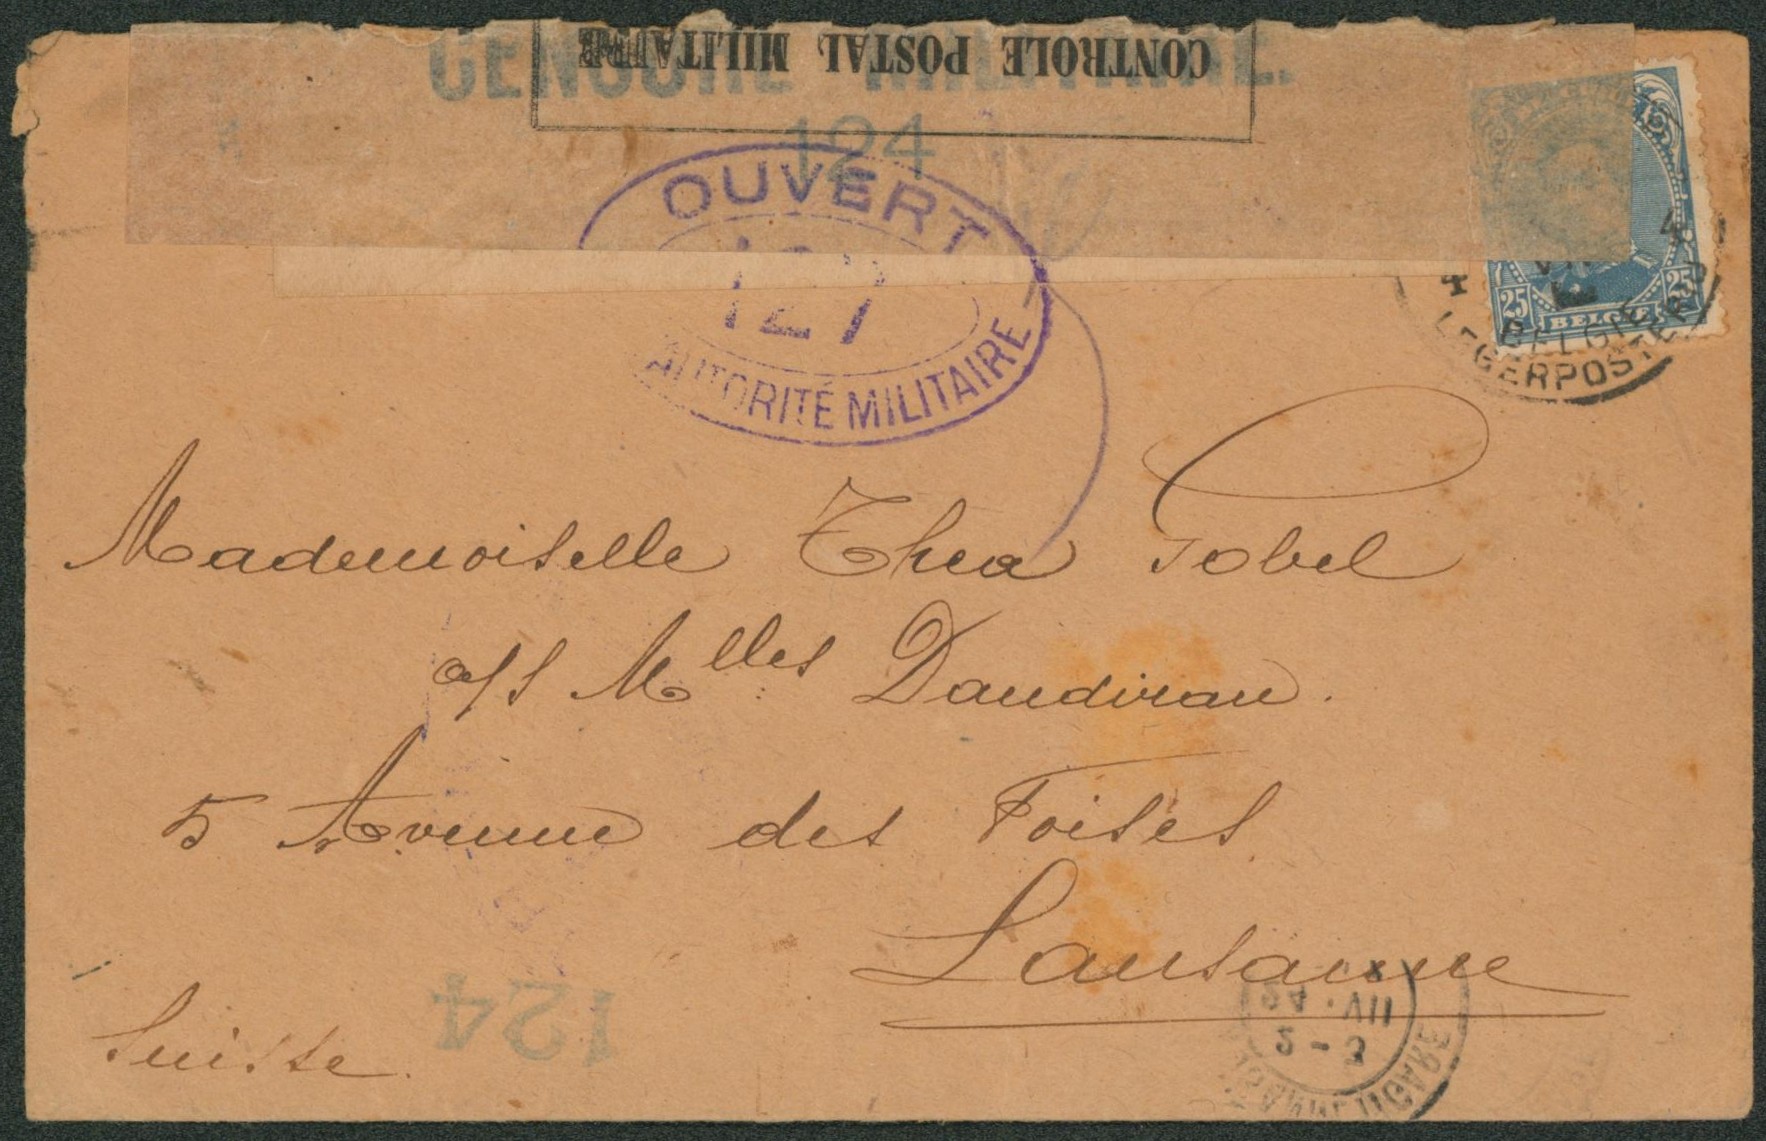 CONTROLE POSTAL MILITAIRE
CENSURE MILITAIRE.
124
OUVERT
127
AUTORITÉ MILITAIRE
4
25 BELGIE 25
BELGIE
LEGERPOSTERIJ
Mademoiselle Thea Gobel
a/s Mlles Daudirau.
5 Avenue des Toises.
Lausanne
Suisse.
124
24 · VII
GARE